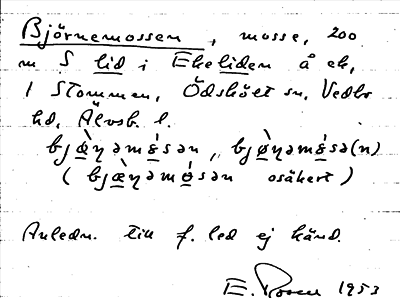 Björnemossen, mosse, 200
m S lid i Ekeliden å ek,
1 Stommen, Ödsköłt sn, Vedbo
hd, Älvsb. l.
bjæ̀ṇəmǿsən, bjø̀ṇəmɛ́sə(n)
(bjæ̀ṇəmǿsən osäkert)
Anledn. till f. led ej känd.
E. 1953